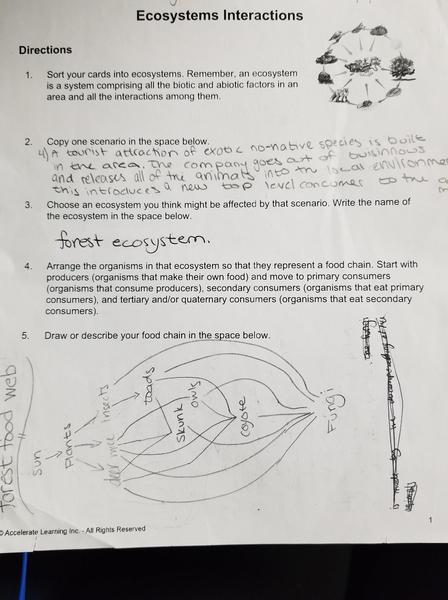 Ecosystems Interactions
Directions
1. Sort your cards into ecosystems. Remember, an ecosystem
is a system comprising all the biotic and abiotic factors in an
area and all the interactions among them.
2. Copy one scenario in the space below.
4) A tourist attraction of exotic no-native species is built
in the area. The company goes out of buisinnows
and releases all of the animals into the local environme
this introduces a new top level concumer to the
3. Choose an ecosystem you think might be affected by that scenario. Write the name
of the ecosystem in the space below.
forest ecosystem.
4. Arrange the organisms in that ecosystem so that they represent a food chain. Start with
producers (organisms that make their own food) and move to primary consumers
(organisms that consume producers), secondary consumers (organisms that eat primary
consumers), and tertiary and/or quaternary consumers (organisms that eat secondary
consumers).
5. Draw or describe your food chain in the space below.
forest food web
sun
Plants
insects
deer mice
toads
skunk
owls
coyote
Fungi
1
© Accelerate Learning Inc. - All Rights Reserved